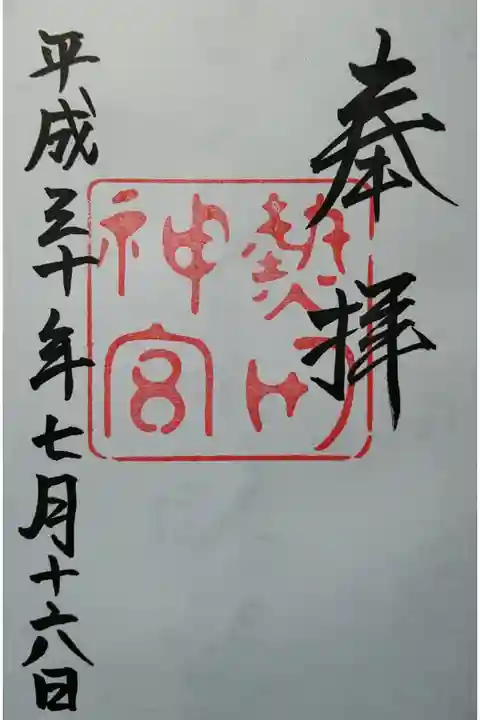 奉拝
神宮
平成三十年七月十六日